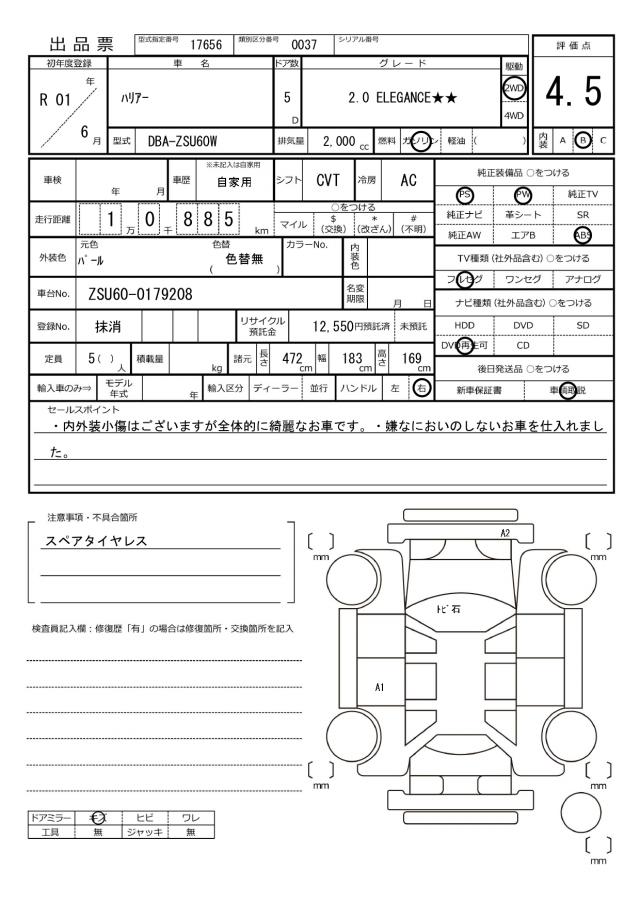 出品票 型式指定番号 17656 類別区分番号 0037 シリアル番号
評価点
4.5
内装 A B C
初年度登録 車名 ドア数 グレード 駆動
R 01 年 6 月 ハリアー 5 D 2.0 ELEGANCE★★ 2WD
4WD
型式 DBA-ZSU60W 排気量 2,000 cc 燃料 ガソリン 軽油 ( )
車検 年 月 車歴 ※未記入は自家用 自家用 シフト CVT 冷房 AC
走行距離 1 万 0 千 885 km
○をつける
マイル $(交換) *(改ざん) #(不明)
外装色 元色 パール 色替 ( 色替無 ) カラーNo. 内装色
車台No. ZSU60-0179208 名変期限 月 日
登録No. 抹消 リサイクル預託金 12,550円預託済 未預託
定員 5( )人 積載量 kg 諸元 長さ 472cm 幅 183cm 高さ 169cm
輸入車のみ⇒ モデル年式 年 輸入区分 ディーラー 並行 ハンドル 左 右
純正装備品 ○をつける
PS PW 純正TV
純正ナビ 革シート SR
純正AW エアB ABS
TV種類(社外品含む)○をつける
フルセグ ワンセグ アナログ
ナビ種類(社外品含む)○をつける
HDD DVD SD
DVD再生可 CD
後日発送品 ○をつける
新車保証書 車輌取説
セールスポイント
・内外装小傷はございますが全体的に綺麗なお車です。・嫌なにおいのしないお車を仕入れまし
た。
注意事項・不具合箇所
スペアタイヤレス
検査員記入欄：修復歴「有」の場合は修復箇所・交換箇所を記入
A2
mm
mm
トビ石
A1
mm
mm
mm
ドアミラー キズ ヒビ ワレ
工具 無 ジャッキ 無